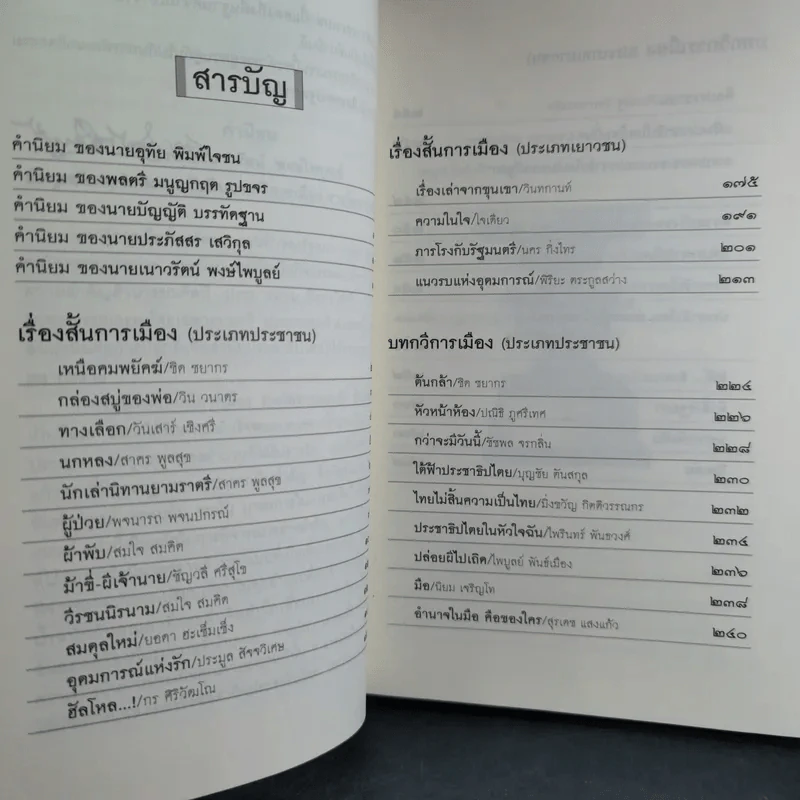 สารบัญ
คำนิยม ของนายอุทัย พิมพ์ใจชน
คำนิยม ของพลตรี มนูญกฤต รูปขจร
คำนิยม ของนายบัญญัติ บรรทัดฐาน
คำนิยม ของนายประภัสสร เสวิกุล
คำนิยม ของนายเนาวรัตน์ พงษ์ไพบูลย์
เรื่องสั้นการเมือง (ประเภทประชาชน)
เหนือคมพยัคฆ์/ชิด ชยากร
กล่องสบู่ของพ่อ/วิน วนาดร
ทางเลือก/วันเสาร์ เชิงศรี
นกหลง/สาคร พูลสุข
นักเล่านิทานยามราตรี/สาคร พูลสุข
ผู้ป่วย/พจนารถ พจนปกรณ์
ผ้าพับ/สมใจ สมคิด
ม้าขี่-ผีเจ้านาย/ชัญวลี ศรีสุโข
วีรชนนิรนาม/สมใจ สมคิด
สมดุลใหม่/ยอดา ฮะเซ็มเซ็ง
อุดมการณ์แห่งรัก/ประมูล สัจจวิเศษ
ฮัลโหล...!/กร ศิริวัฒโณ
เรื่องสั้นการเมือง (ประเภทเยาวชน)
เรื่องเล่าจากขุนเขา/วินทกานท์ ๑๗๕
ความในใจ/ใจเดียว ๑๙๑
ภารโรงกับรัฐมนตรี/นคร กิ่งไทร ๒๐๑
แนวรบแห่งอุดมการณ์/พิริยะ ตระกูลสว่าง ๒๑๓
บทกวีการเมือง (ประเภทประชาชน)
ต้นกล้า/ชิด ชยากร ๒๒๔
หัวหน้าห้อง/ปณิธิ ภูศรีเทศ ๒๒๖
กว่าจะมีวันนี้/ชัชพล จรกลิ่น ๒๒๘
ใต้ฟ้าประชาธิปไตย/บุญชัย ตันสกุล ๒๓๐
ไทยไม่สิ้นความเป็นไทย/มิ่งขวัญ กิตติวรรณกร ๒๓๒
ประชาธิปไตยในหัวใจฉัน/ไพรินทร์ พันธวงศ์ ๒๓๔
ปล่อยผีไปเถิด/ไพบูลย์ พันธ์เมือง ๒๓๖
มือ/นิยม เจริญโท ๒๓๘
อำนาจในมือ คือของใคร/สุรเดช แสงแก้ว ๒๔๐